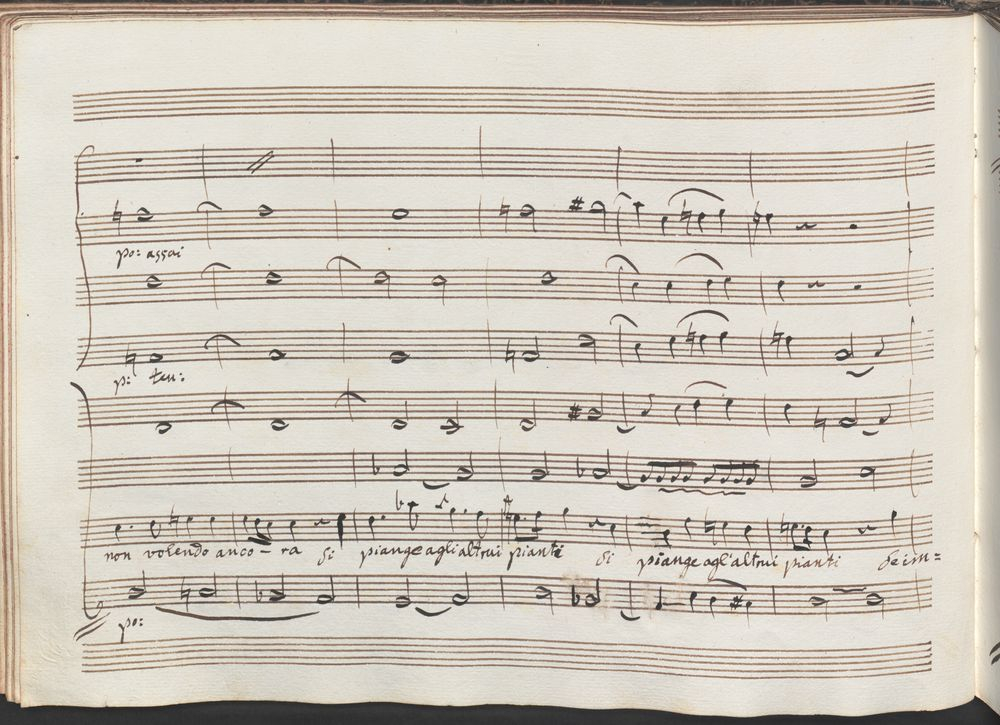 po: assai
p: ten:
non volendo anco - ra si piange agli altrui pianti si piange agl'altrui pianti se im=
po: